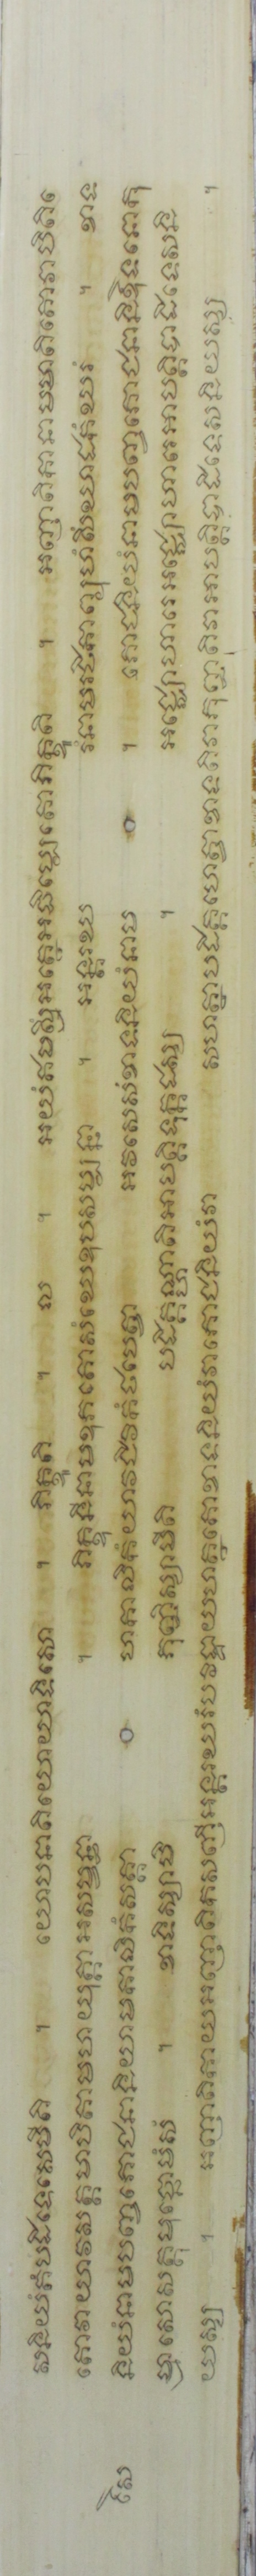 សនិយំតំបដិទេសេមីតិ ។ យោបនាតិយោយាទិសោ ។ ភិក្ខូតិ ។ ល ។ អយំឥមស្មឹអត្ថេអធិប្បេតោភិក្ខូតិ ។ អញាតិកានាមមាតិតោវាបិតិ
តោវាយាវសត្តមាបិតាមហយុគ្គាអសម្ពន្ធា ។ ភិក្ខុនីនាមឧភតោសំឃេឧបសម្បន្នា ។ អន្តរឃរំនាមរថិកាព្យូហំសឹឃាដកំឃរំ ។ ខាទ
និយំនាមបញ្ចភោជនានិយាមកាលិកំសត្តាហកាលិកំយាវជីវិកំថបេត្វា អវសេសំខាទនិយំនាម ។ ភោជនិយំនាមបញ្ចភោជនានិឱទនោកុ
ម្មាសោសត្តុមច្ឆោមំសំ ។ ខាទិស្សាមិ ភុញ្ជិស្សាមីតិ បដិគ្គណ្ហាតិអាបត្តិទុក្កដស្ស ។ អជ្ឈោហារេអជ្ឈោហារេអាបត្តិបាដិទេសនិ
យស្ស ។ អញាតិកាយអញាតិកសញីអន្តរឃរំបវិដ្ឋាយហត្ថតោខាទនិយំវាភោជនិយំវា សហត្ថាបដិគ្គហេត្វាខាទតិវាភុញ្ជតិវាអាបត្តិបាដិទេសនិយស្ស ។